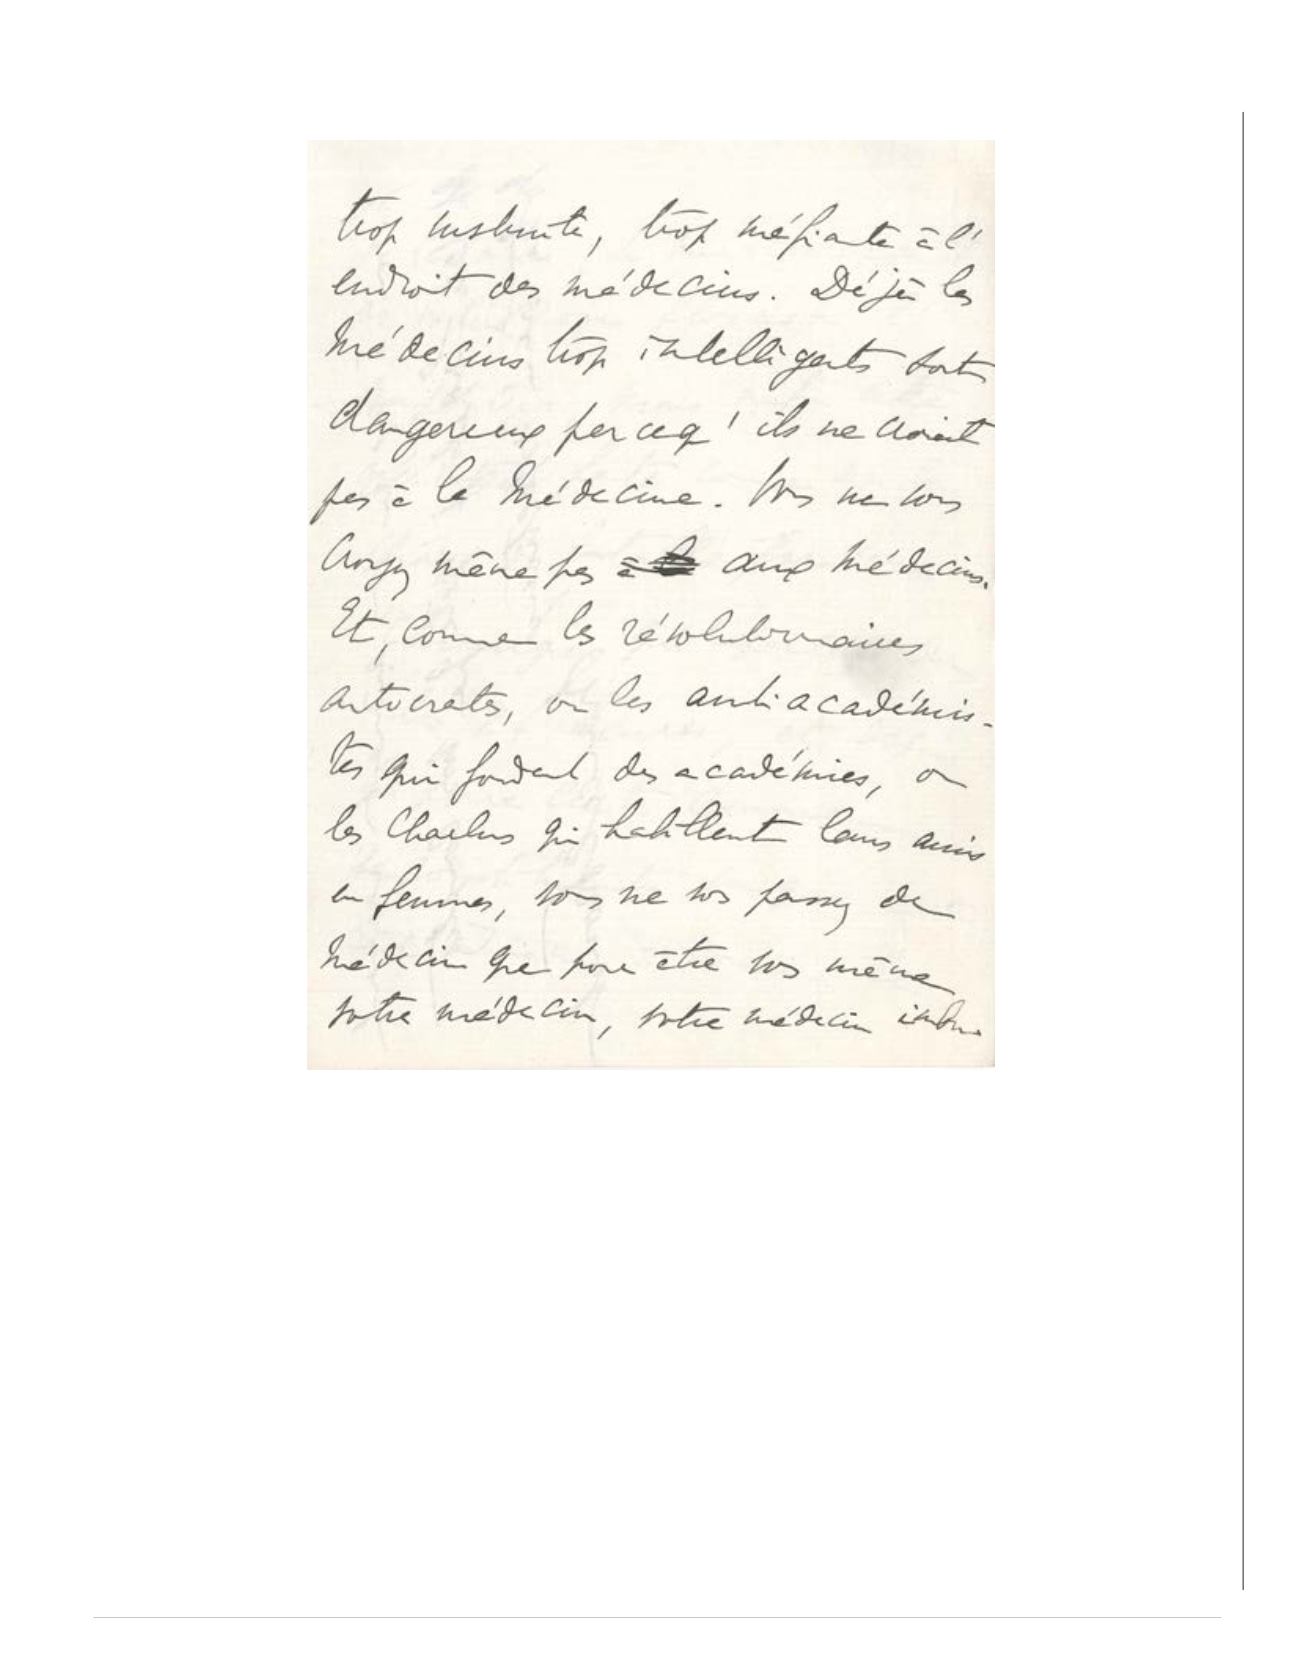 trop instruite, trop méfiante à l'
endroit des médecins. Déjà les
Médecins trop intelligents sont
dangereux parceq' ils ne croient
pas à la Médecine. Vous ne vous
croyez même pas à aux Médecins.
Et, comme les révolutionnaires
autocrates, ou les antiacadémis-
tes qui fondent des académies, ou
les Charlus qui habillent leurs amis
en femmes, vous ne vos passez de
Médecin que pour être vos même
votre médecin, votre médecin